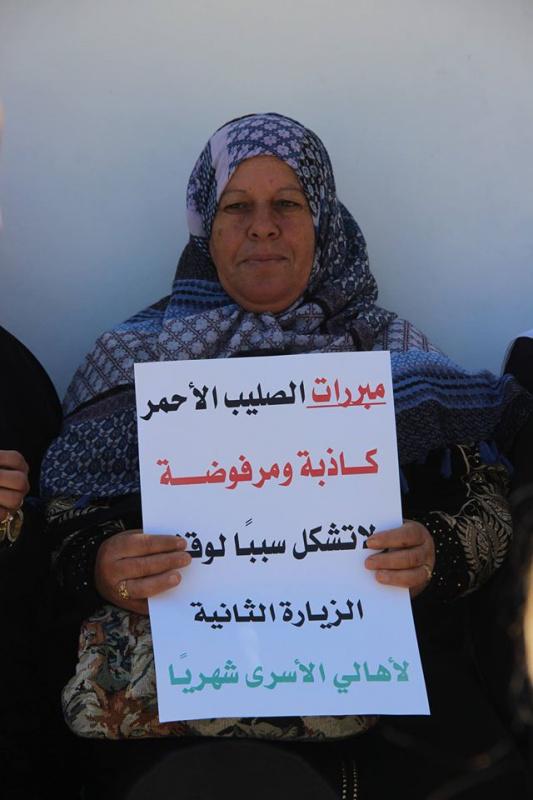 مبررات الصليب الأحمر
كاذبة ومرفوضة
لاتشكل سببًا
الزيارة الثانية
لأهالي الأسرى شهريًا